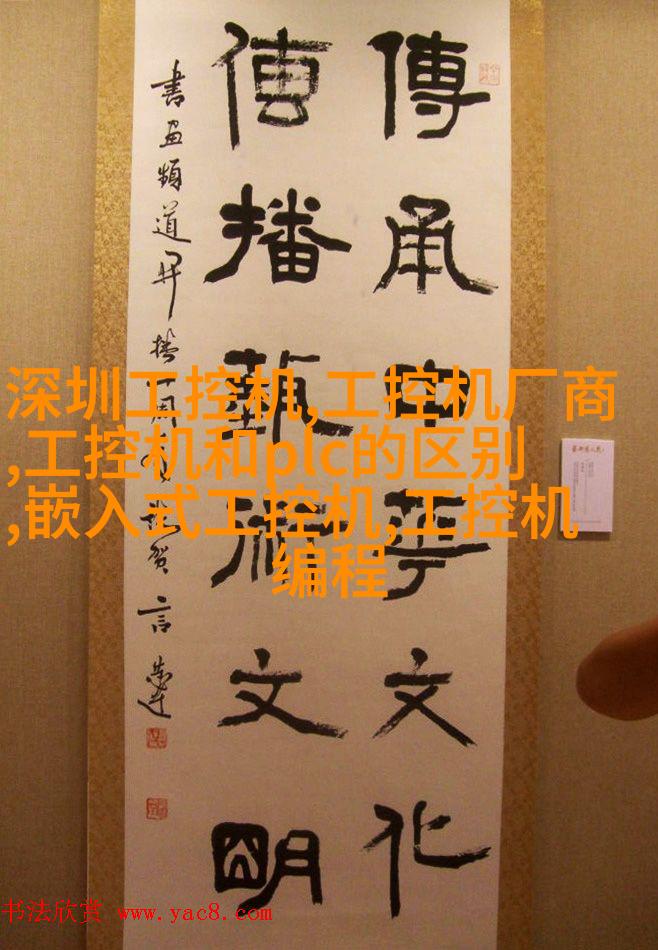 傳承中華文化
傳播藝術文明
書画頻道开播一周年賀 言恭达
深圳工控机,工控机厂商
,工控机和plc的区别
,嵌入式工控机,工控机
编程
书法欣赏 www.yac8.com